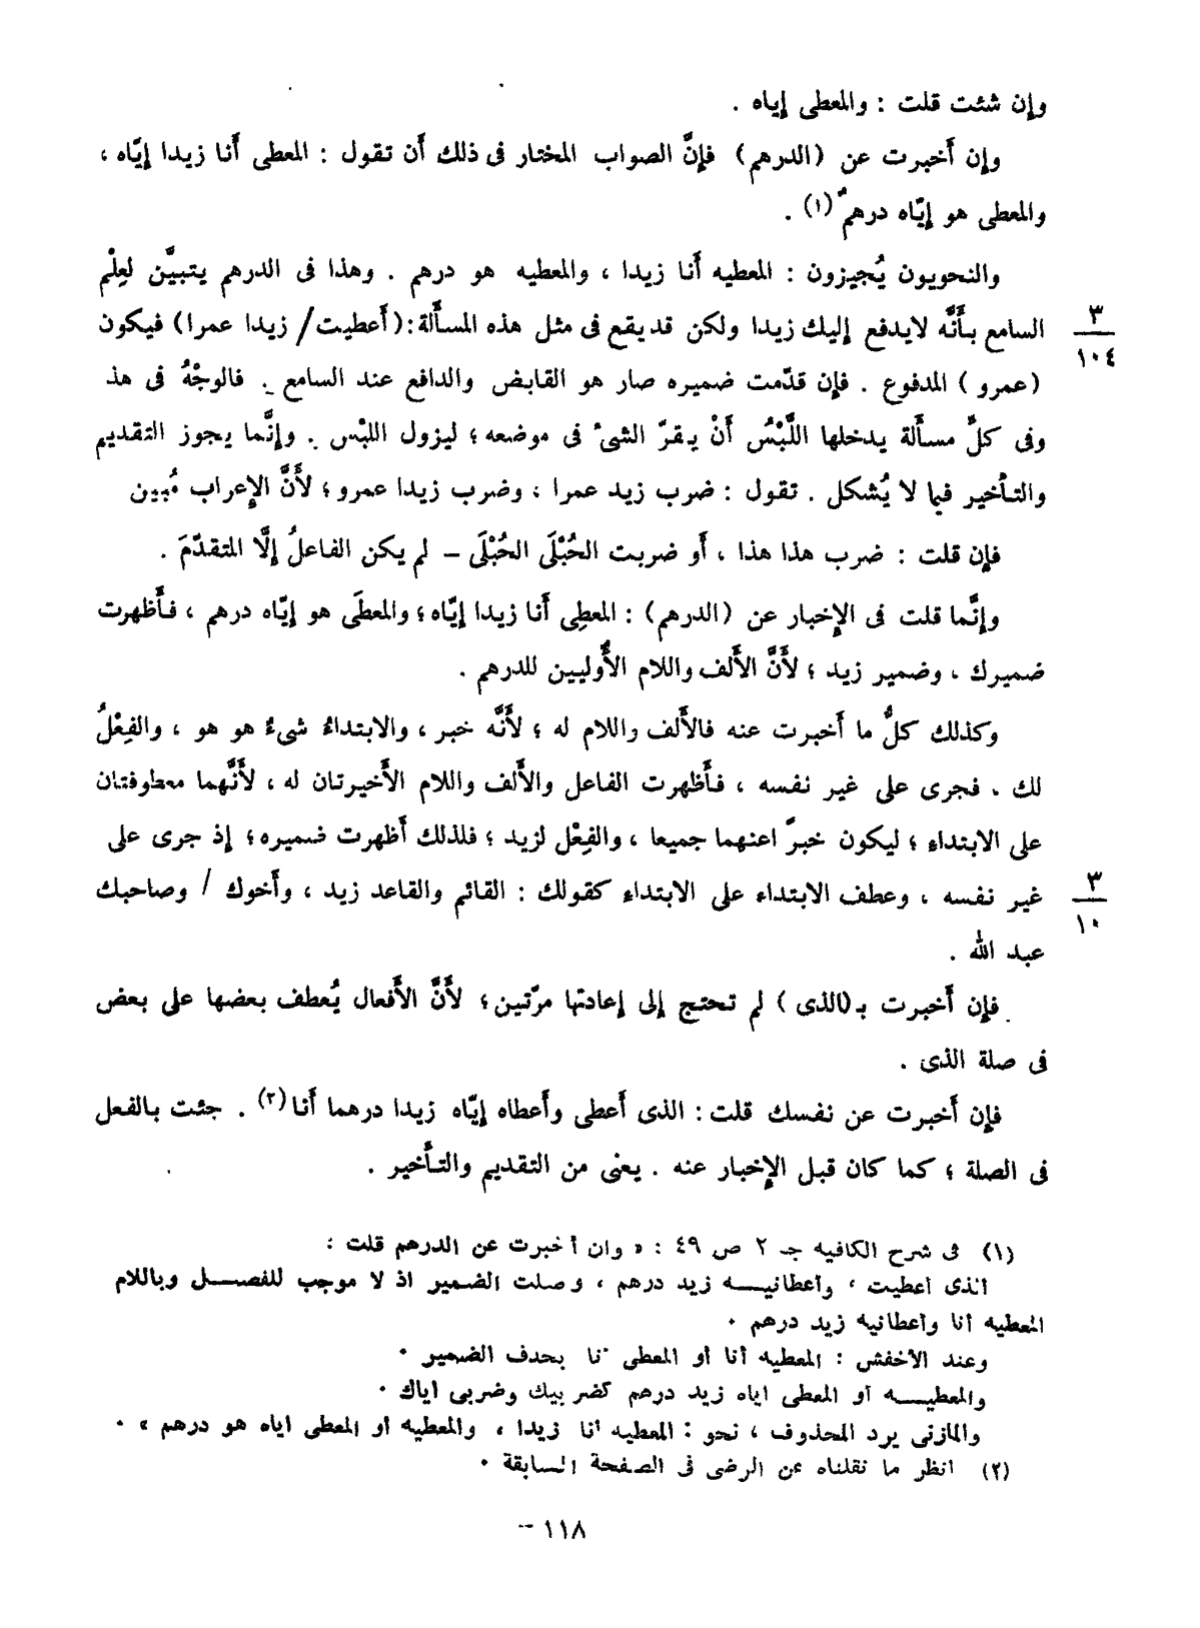 وإن شئت قلت : والمعطى إياه .
وإن أَخبرت عن (الدرهم) فإنَّ الصواب المختار فى ذلك أَن تقول : المعطى أَنا زيدا إيّاه ،
والمعطى هو إيّاه درهمٌ (١) .
والنحويون يُجيزون : المعطيه أَنا زيدا ، والمعطيه هو درهم . وهذا فى الدرهم يتبيَّن لعِلْم
السامع بأَنَّه لايدفع إليك زيدا ولكن قد يقع فى مثل هذه المسأَلة : (أَعطيت/ زيدا عمرا) فيكون
٣
١٠٤
(عمرو) المدفوع . فإن قدّمت ضميره صار هو القابض والدافع عند السامع . فالوجْهُ فى هذ
وفى كلِّ مسأَلة يدخلها اللَّبْسُ أَنْ يقرّ الشىءُ فى موضعه ؛ ليزول اللبْس . وإنَّما يجوز التقديم
والتأْخير فيما لا يُشكل . تقول : ضرب زيد عمرا ، وضرب زيدا عمرو ؛ لأَنَّ الإِعراب مُبين
فإن قلت : ضرب هذا هذا ، أَو ضربت الحُبْلَى الحُبْلَى – لم يكن الفاعلُ إلَّا المتقدّمَ .
وإنَّما قلت فى الإِخبار عن (الدرهم) : المعطِى أَنا زيدا إيّاه ؛ والمعطَى هو إيّاه درهم ، فأَظهرت
ضميرك ، وضمير زيد ؛ لأَنَّ الأَلف واللام الأُوليين للدرهم .
وكذلك كلُّ ما أَخبرت عنه فالأَلف واللام له ؛ لأَنَّه خبر ، والابتداءُ شىءٌ هو هو ، والفِعْلُ
لك . فجرى على غير نفسه ، فأَظهرت الفاعل والأَلف واللام الأَخيرتان له ، لأَنَّهما معطوفتان
على الابتداءِ ؛ ليكون خبرًا عنهما جميعا ، والفِعْل لزيد ؛ فلذلك أَظهرت ضميره ؛ إذ جرى على
غير نفسه ، وعطف الابتداء على الابتداءِ كقولك : القائم والقاعد زيد ، وأَخوك / وصاحبك
٣
١٠
عبد الله .
فإن أَخبرت بـ(الذى) لم تحتج إلى إعادتها مرّتين ؛ لأَنَّ الأَفعال يُعطف بعضها على بعض
فى صلة الذى .
فإن أَخبرت عن نفسك قلت : الذى أَعطى وأَعطاه إيّاه زيدا درهما أَنا (٢) . جئت بالفعل
فى الصلة ؛ كما كان قبل الإِخبار عنه . يعنى من التقديم والتأْخير .
(١) فى شرح الكافيه جـ ٢ ص ٤٩ : « وان أخبرت عن الدرهم قلت :
الذى أعطيت ، وأعطانيـــه زيد درهم ، وصلت الضمير اذ لا موجب للفصـــل وباللام
المعطيه أنا وأعطانيه زيد درهم ·
وعند الأخفش : المعطيه أنا أو المعطى أنا بحذف الضمير ·
والمعطيـــه أو المعطى اياه زيد درهم كضربيك وضربى اياك ·
والمازنى يرد المحذوف ، نحو : المعطيه أنا زيدا ، والمعطيه أو المعطى اياه هو درهم » ·
(٢) انظر ما نقلناه عن الرضى فى الصفحة السابقة ·
– ١١٨